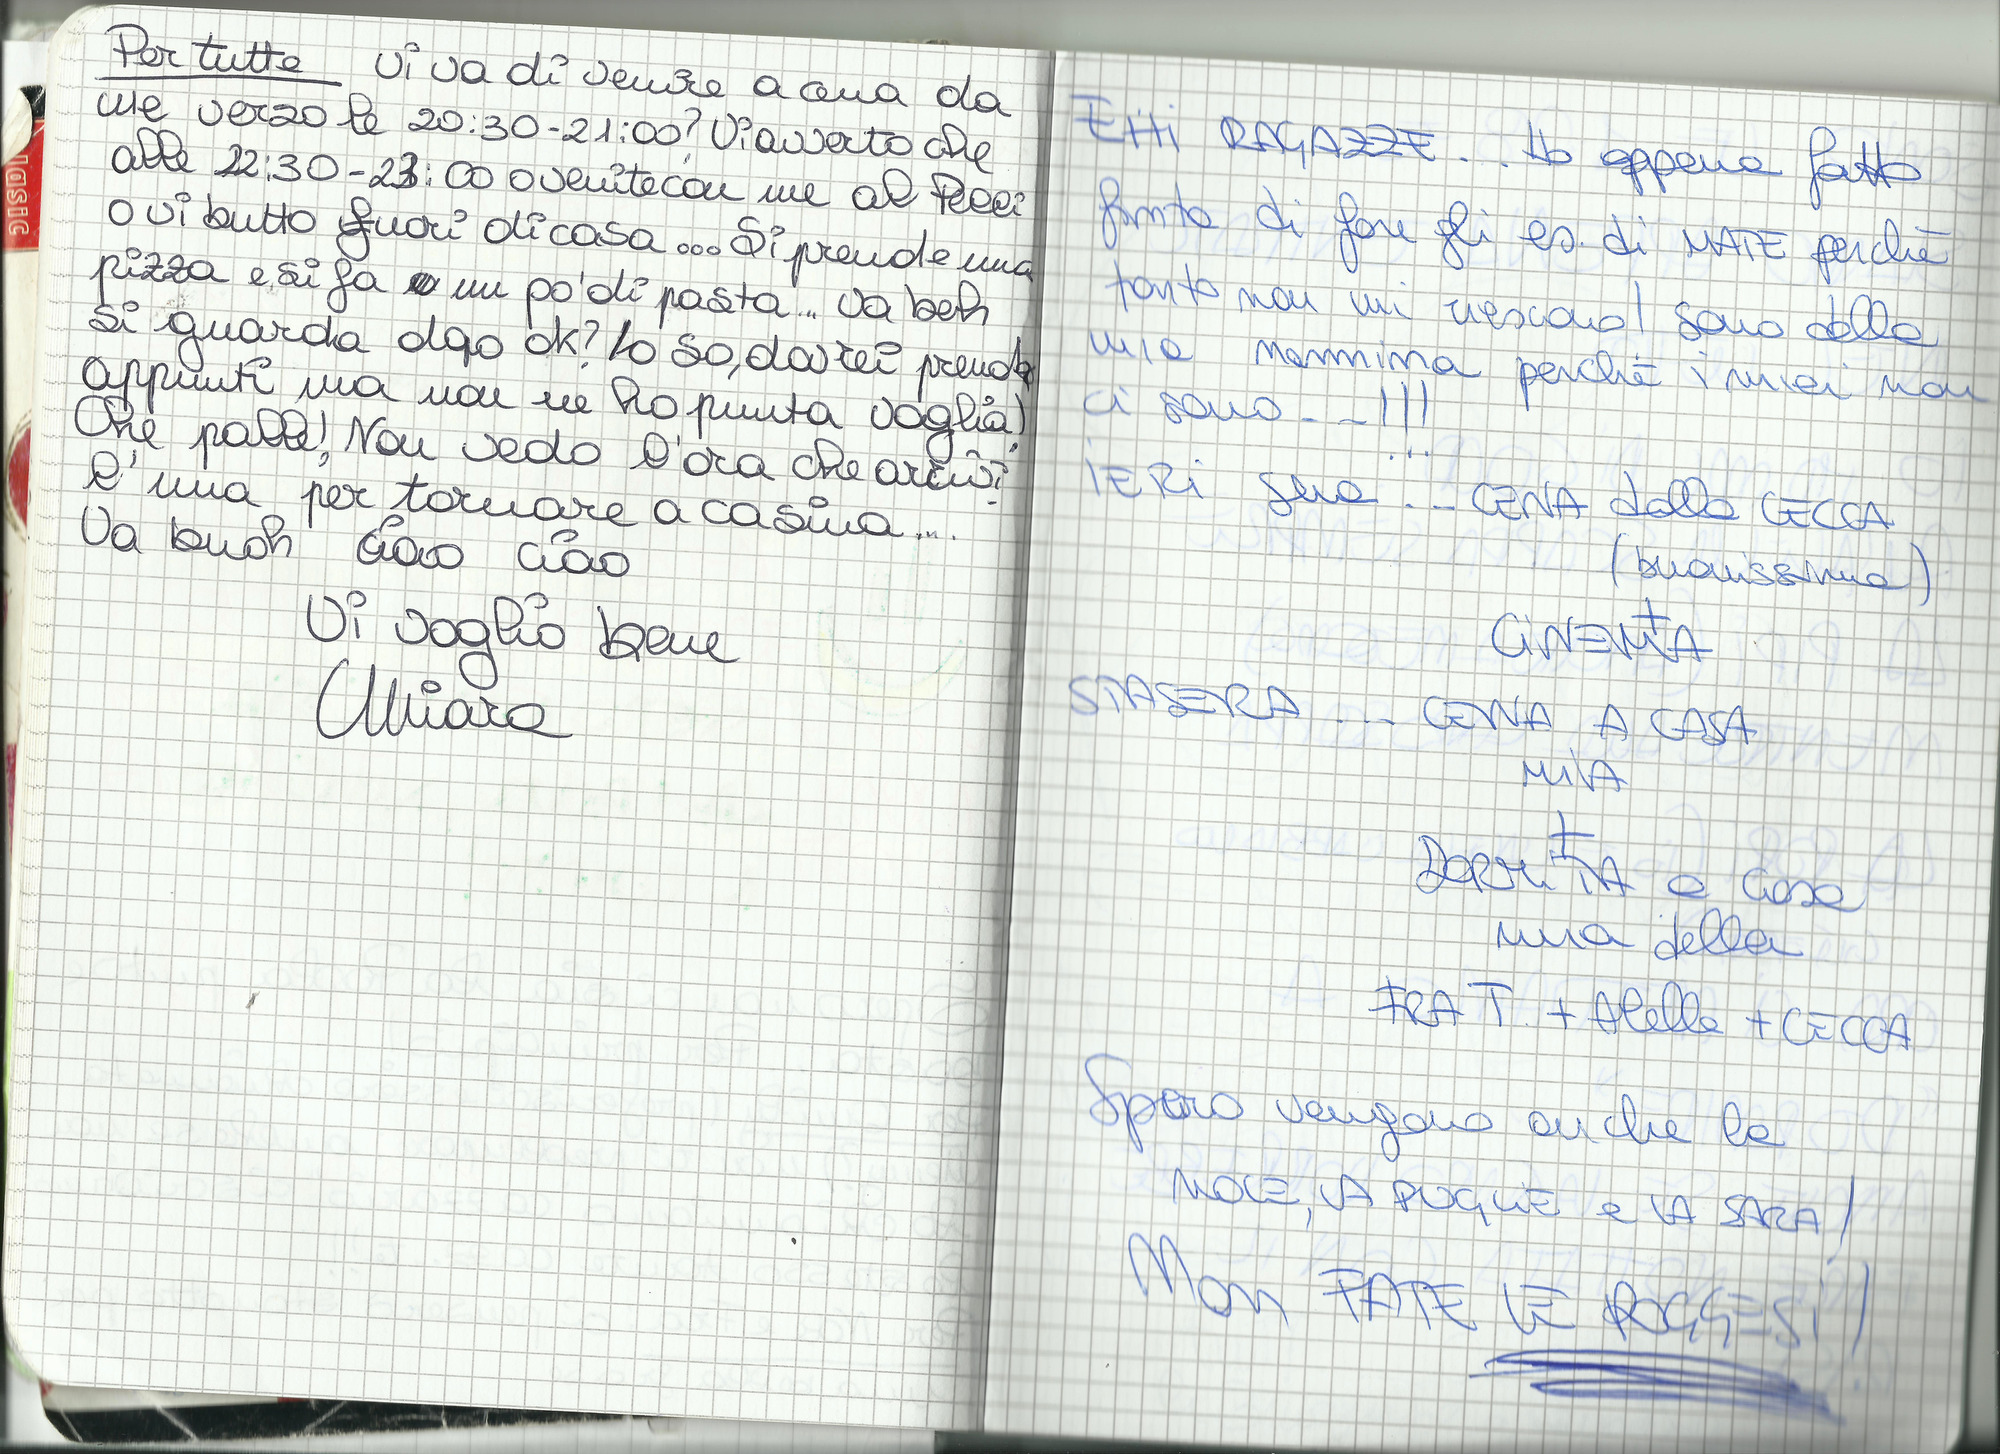 Per tutte vi va di venire a cena da
me verzo le 20:30-21:00? Vi avverto che
alle 22:30-23:00 o venite con me al Pecci
o vi butto fuori di casa... Si prende una
pizza e si fa un po' di pasta... va beh
si guarda dopo ok? Lo so, dovrei prende
appunti ma non ne ho punta voglia!
Che palle! Non vedo l'ora che arrivi
l'una per tornare a casina...
Va buoh ciao ciao
Vi voglio bene
Chiara
EHi RAGAZZE... Ho appena fatto
finta di fare gli es. di MATE perchè
tanto non mi riescono! Sono dalla
mia nonnina perchè i miei non
ci sono...!!!
...
IERi sera... CENA dalla CECCA
(buonissima)
+
CiNEMA
STASERA ... CENA A CASA
MIA
+
DORMiTA a casa
mia della
FRA T. + Alella + CECCA
Spero vengano anche la
MOCE, LA PUGLiE e LA SARA!
Non FATE LE POGGESi!
lasic